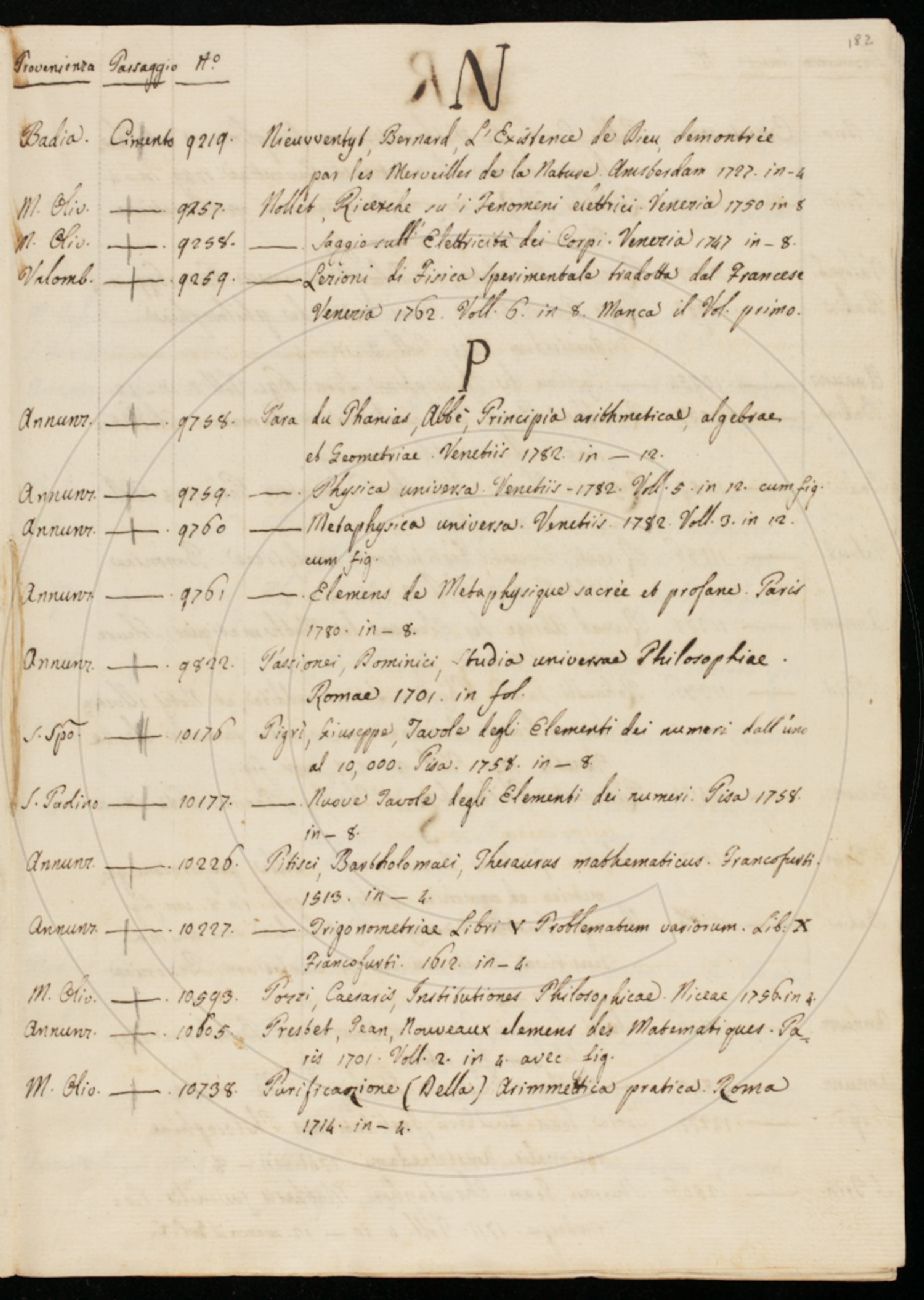 182
Provenienza Passaggio Nº
N
Badia. Cimento 9219. Nieuwentyt, Bernard, L'Existence de Dieu, demontrèe
par les Merveilles de la Nature. Amsterdam 1727. in-4
M. Oliv. — 9257. Nollet, Ricerche su' i Fenomeni elettrici. Venezia 1750 in 8
M. Oliv. — 9258. — Saggio sull' Elettricità dei Corpi. Venezia 1747 in-8.
Valomb. — 9259. — Lezioni di Fisica Sperimentale tradotte dal Francese
Venezia 1762. Voll. 6. in 8. Manca il Vol. primo.
P
Annunz. — 9758. Para du Phanias, Abbè, Principia arithmeticae, algebrae
et Geometriae. Venetiis 1782. in — 12.
Annunz. — 9759. — Physica universa. Venetiis - 1782. Voll. 5. in 12. cum fig.
Annunz. — 9760 — Metaphysica universa. Venetiis. 1782. Voll. 3. in 12.
cum fig.
Annunz. — 9761 — Elemens de Metaphysique sacrèe et profane. Paris
1780. in-8.
Annunz. — 9822. Passionei, Dominici, Studia universae Philosophiae.
Romae 1701. in fol.
S. Spo. — 10176 Pigri, Giuseppe, Tavole degli Elementi dei numeri dall' uno
al 10,000. Pisa. 1758. in — 8.
S. Paolino — 10177. — Nuove Tavole degli Elementi dei numeri. Pisa 1758.
in-8.
Annunz. — 10226. Pitisci, Bartholomaei, Thesaurus mathematicus. Francofurti.
1513. in — 4.
Annunz. — 10227. — Trigonometriae Libri V Problematum variorum. Lib. X
Francofurti. 1612. in-4.
M. Oliv. — 10593. Pozzi, Caesaris, Institutiones Philosophicae. Niceae 1756. in 4.
Annunz. — 10605. Prestet, Jean, Nouveaux elemens des Matematiques. Pa-
ris 1701. Voll. 2. in 4. avec fig.
M. Oliv. — 10738. Purificazione (Della) Arimmetica pratica. Roma
1714. in-4.